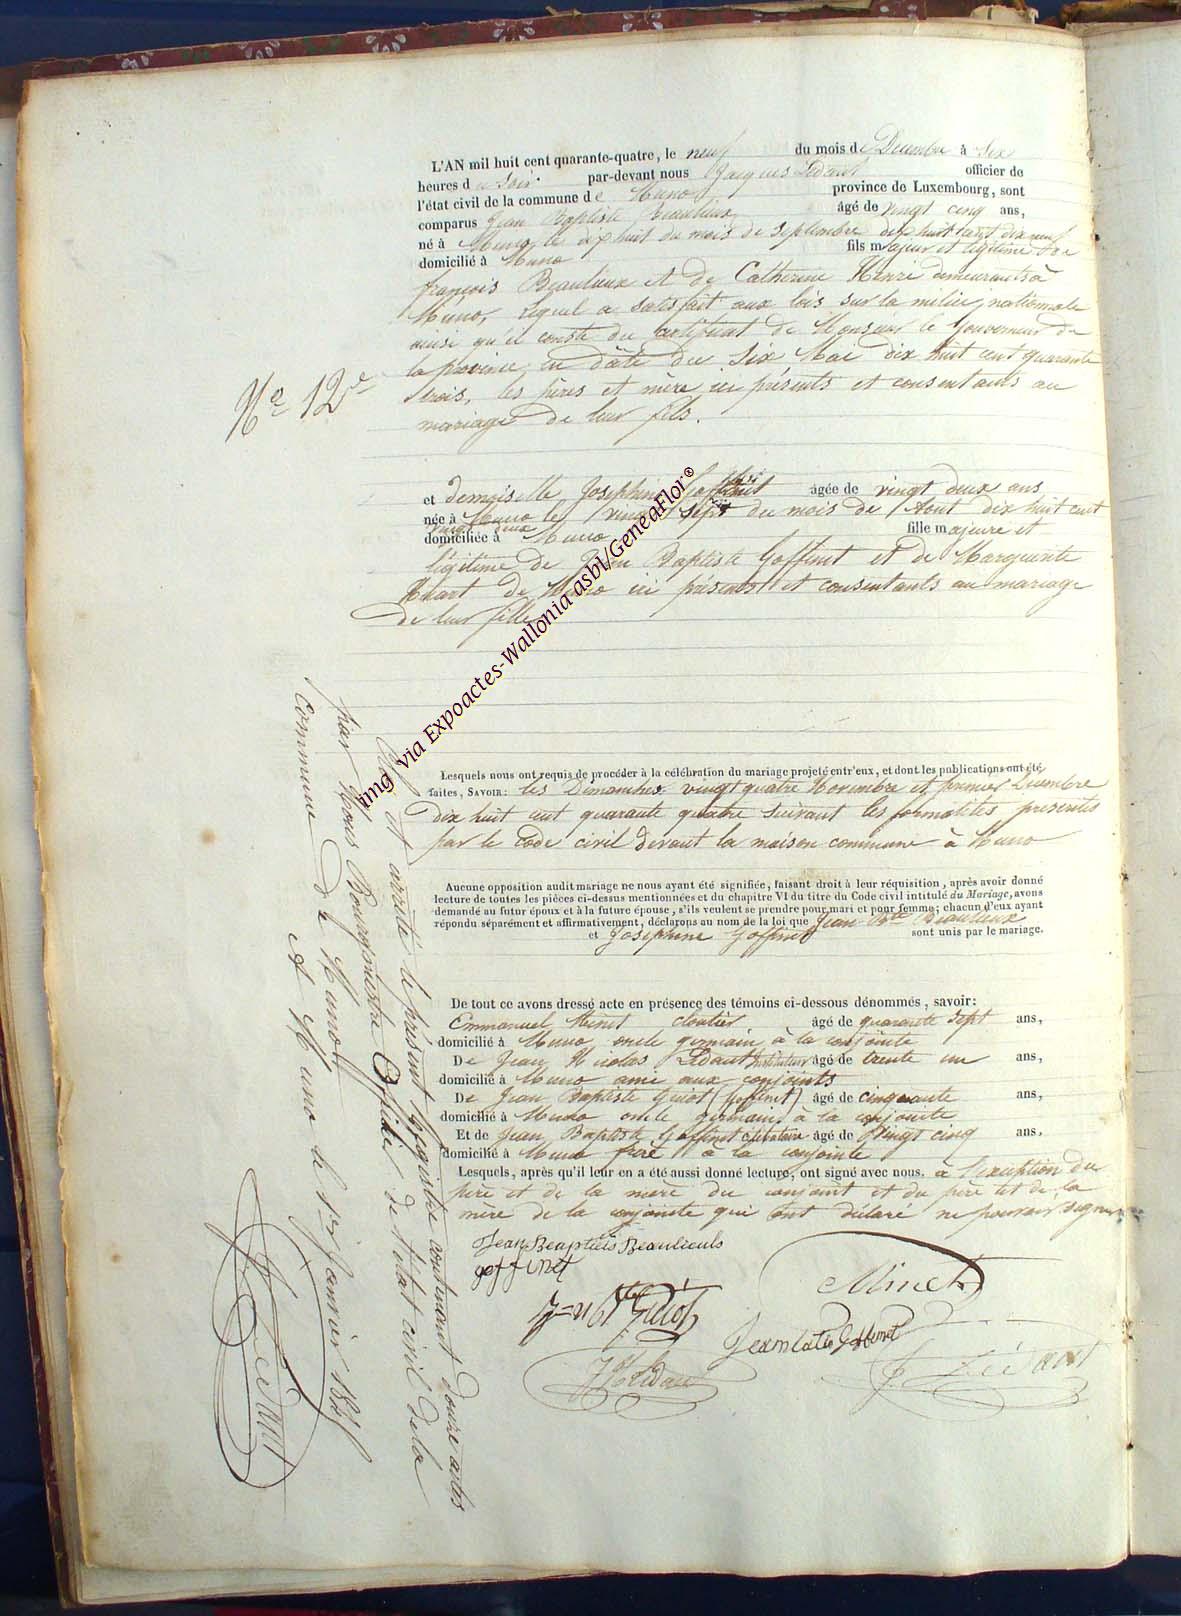 L'AN mil huit cent quarante-quatre, le neuf du mois de Décembre à Six
heures du Soir. par-devant nous Jacques Lédant officier de
l'état civil de la commune de Muno province de Luxembourg, sont
comparus Jean Baptiste Beaulieux âgé de vingt cinq ans,
né à Muno le dix huit du mois de Septembre dix huit cent dix neuf
domicilié à Muno fils majeur et légitime de
françois Beaulieux et de Catherine Henri demeurants à
Muno, lequel a satisfait aux lois sur la milice nationale
ainsi qu'il conste du certificat de Monsieur le Gouverneur de
la province, en dâte du Six Mai dix huit cent quarante
trois, les pères et mère ici présents et consentants au
mariage de leur fils.
No 12e
et demoiselle Josephine Goffinet âgée de vingt deux ans
née à Muno le vingt sept du mois de Aout dix huit cent
vingt deux
domiciliée à Muno fille majeure et
légitime de Jean Baptiste Goffinet et de Marguerite
Huart de Muno ici présents et consentants au mariage
de leur fille
img via Expoactes-Wallonia asbl/GeneaFlor®
Lesquels nous ont requis de procéder à la célébration du mariage projeté entr'eux, et dont les publications ont été
faites, SAVOIR: les Dimanches vingt quatre Novembre et premier Décembre
dix huit cent quarante quatre suivant les formalités prescrites
par le Code civil devant la maison commune à Muno
Aucune opposition audit mariage ne nous ayant été signifiée, faisant droit à leur réquisition, après avoir donné
lecture de toutes les pièces ci-dessus mentionnées et du chapitre VI du titre du Code civil intitulé du Mariage, avons
demandé au futur époux et à la future épouse, s'ils veulent se prendre pour mari et pour femme; chacun d'eux ayant
répondu séparément et affirmativement, déclarons au nom de la loi que Jean Bte Beaulieux
et Josephine Goffinet sont unis par le mariage.
De tout ce avons dressé acte en présence des témoins ci-dessous dénommés, savoir:
Emmanuel Minet cloutier âgé de quarante sept ans,
domicilié à Muno oncle germain à la conjointe
De Jean Nicolas Lédant instituteur âgé de trente un ans,
domicilié à Muno ami aux conjoints
De Jean Baptiste Guiot (Goffinet) âgé de cinquante ans,
domicilié à Muno oncle germain à la conjointe
Et de Jean Baptiste Goffinet âgé de vingt cinq ans,
domicilié à Muno frère à la conjointe
Lesquels, après qu'il leur en a été aussi donné lecture, ont signé avec nous. à l'exception du
père et de la mère du conjoint et du père et de la
mère de la conjointe qui ont déclaré ne pouvoir signer
Jean Beaptiets Beaulieuls
goffinet
Minet
Guiot
Goffinet
Lédant
J. Lédant
Clos et arrêté le présent Registre contenant douze actes
par Nous Bourgmestre Officier de l'état civil de la
Commune de Muno
à Muno le 1er Janvier 1845
J. Lédant